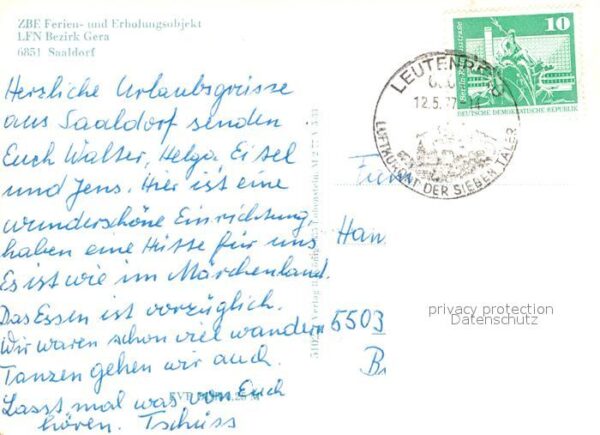 ZBE Ferien- und Erholungsobjekt
LFN Bezirk Gera
6851 Saaldorf
Herzliche Urlaubsgrüsse
aus Saaldorf senden
Euch Walter, Helga, Eisel
und Jens. Hier ist eine
wunderschöne Einrichtung,
haben eine Hütte für uns.
Es ist wie im Märchenland.
Das Essen ist vorzüglich.
Wir waren schon viel wandern
Tanzen gehen wir auch.
Lasst mal was von Euch
hören. Tschüss
10
DEUTSCHE DEMOKRATISCHE REPUBLIK
LEUTENBERG
12.5.77
LUFTKURORT DER SIEBEN TÄLER
Fam
Han
5503
B
privacy protection
Datenschutz